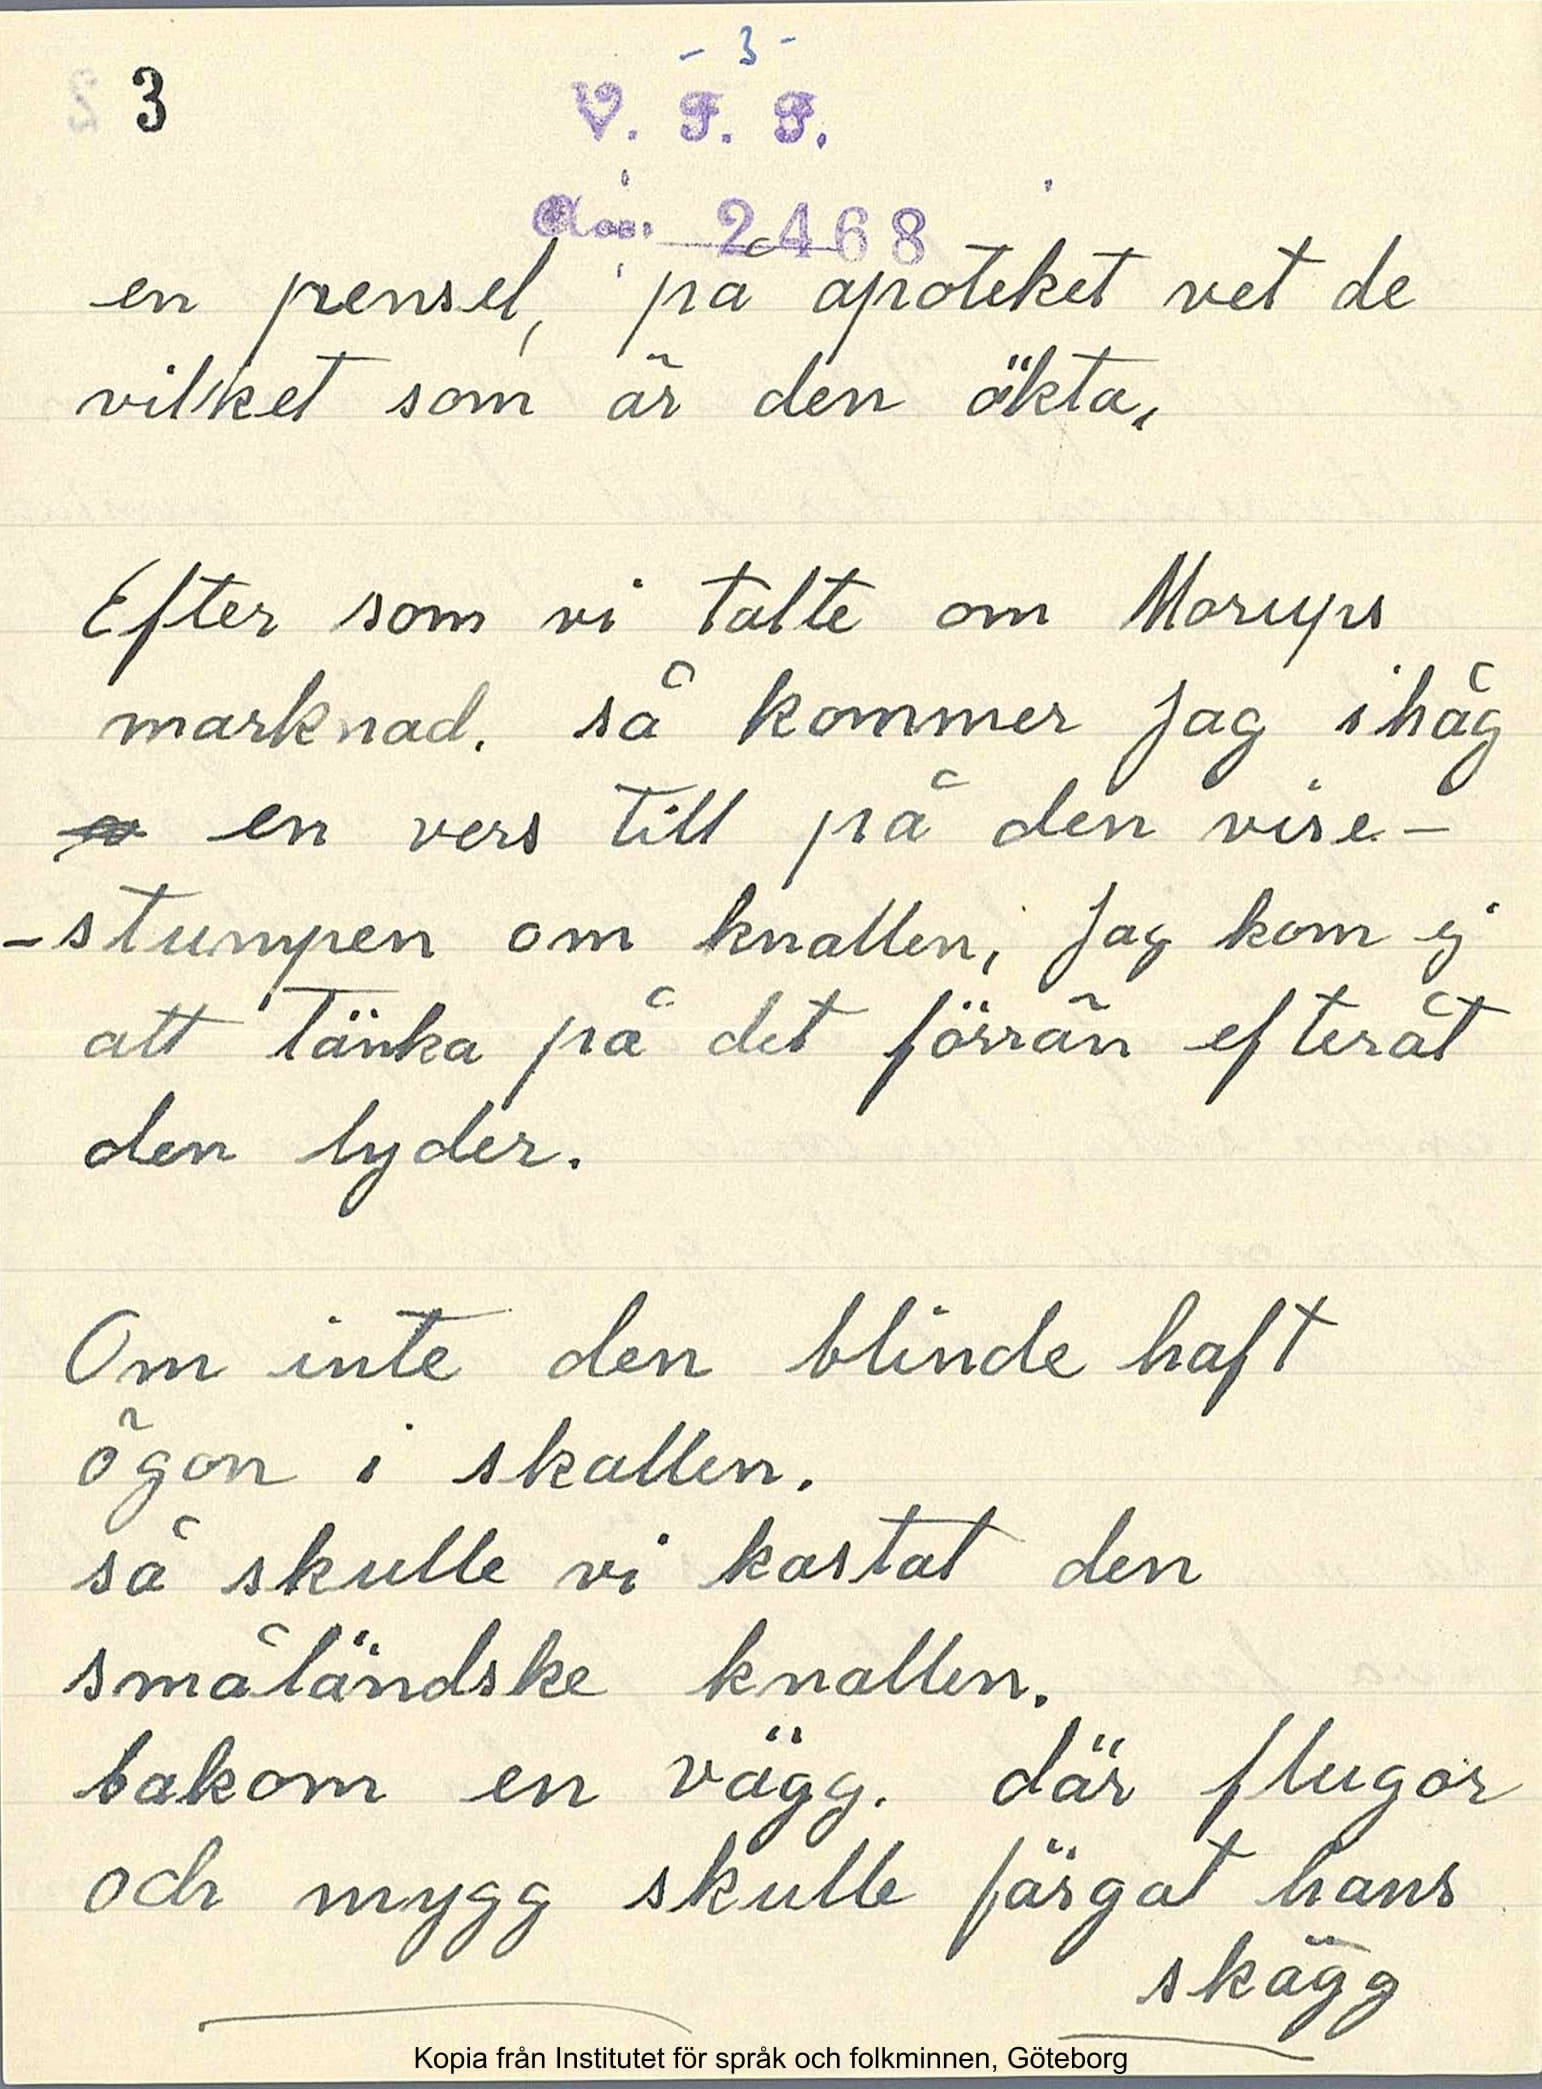 - 3 -
3
V. F. F.
Acc. 2468
en pensel, på apoteket vet de
vilket som är den äkta,
Efter som vi talte om Morups
marknad. så kommer jag ihåg
en vers till på den vise-
-stumpen om knallen, jag kom ej
att tänka på det förrän efteråt
den lyder.
Om inte den blinde haft
ögon i skallen.
så skulle vi kastat den
småländske knallen.
bakom en vägg. där flugor
och mygg skulle färgat hans
skägg
Kopia från Institutet för språk och folkminnen, Göteborg